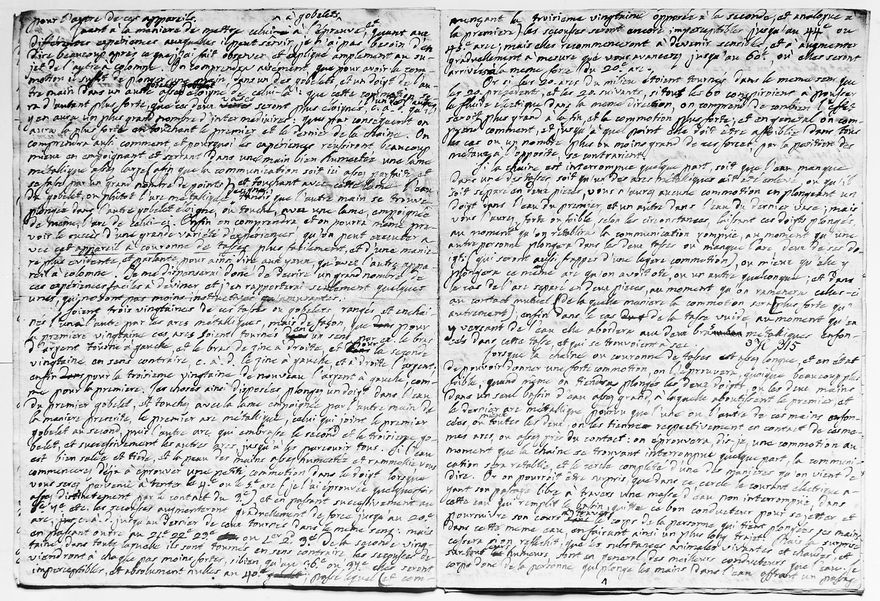 pour d'autre de ces appareils.
Quant à la maniere de mettre celui à gobelets à l'épreuve, et quant aux
différentes expériences auxquelles il peut servir, je n'ai pas besoin d'en
dire beaucoup après ce que j'ai fait observer et expliqué amplement au su-
jet de l'autre à colonne. On comprendra aisément que pour avoir la com-
motion il suffit de plonger une main dans un des gobelets et un doigt de l'au-
tre main dans un autre assez éloigné de celui-là: que cette commotion
sera d'autant plus forte, que ces deux vases seront plus éloignés l'un de l'autre,
y en aura un plus grand nombre d'intermediaires: que par conséquent on
aura la plus forte en touchant le premier et le dernier de la chaîne. On
comprendra aussi comment et pourquoi les expériences reussiront beaucoup
mieux en empoignant et serrant dans une main bien humectée une lame
métallique assez large (afin que la communication soit ici assez parfaite et
se fasse par un grand nombre de points) et touchant avec cette lame l'eau
du gobelet, ou plutôt l'arc métallique, tandis que l'autre main se trouve
plongée dans l'autre gobelet eloigné, ou touche, avec une lame, empoignée
de meme, l'arc de celui-ci. Enfin on comprendra et on pourra même pre-
voir le succès d'une grande variété d'expériences qu'on peut executer a-
vec cet appareil à couronne de tasses plus facilement, et d'une manie-
re plus evidente, et parlante, pour ainsi dire aux yeux, qu'avec l'autre appa-
reil à colonne. Je me dispenserai donc de décrire un grand nombre de
ces expériences faciles à deviner et j'en rapporterai seulement quelques
unes, qui ne sont pas moins instructives qu'amusantes.
Soient trois vingtaines de ces tasses ou gobelets rangés et enchai-
nés l'un à l'autre par les arcs metalliques, mais de façon, que pour
la premiere vingtaine ces arcs soient tournés dans le même sens, p. ex. le bras
d'argent tourné à gauche, et le bras de zinc à droite, et pour la seconde
vingtaine en sens contraire, c. à. d. le zinc à gauche, et à droite l'argent;
enfin pour la troisieme vingtaine de nouveau l'argent à gauche, com-
me pour la premiere. Les choses ainsi disposées plongez un doigt dans l'eau
du premier gobelet, et touchez avec la lame empoignée par l'autre main de
la maniere prescrite le premier arc metallique, celui qui joint le premier
gobelet au second, puis l'autre arc qui embrasse le second et le troisieme go-
belet, et succesivement les autres arcs, jusqu'à les parcourir tous. Si l'eau
est bien salée et tiède, et la peau des mains assez humectée et rammollie, vous
commencerez déjà à éprouver une petite commotion dans le doigt lorsque
vous serez parvenu à toucher le 4e ou le 5e arc (je l'ai éprouvée quelquefois
assez distinctement par le contact du 3e) et en passant succesivement au
6e 7e etc. les secousses augmenteront graduellement de force jusqu'au 20e
arc, c.à.d. jusqu'au dernier de ceux tournés dans le même sens; mais
en passant outre au 21e 22e 23e ou 1er 2e 3e de la seconde ving-
taine, dans laquelle ils sont tournés en sens contraire les secousses de-
viendront à chaque pas moins fortes, si bien qu'au 36e ou 37e elles seront
imperceptibles, et absolument nulles au 40e passé lequel (et com-
mençant la troisième vingtaine opposée à la seconde, et analogue à
la premiere), les secousses seront encore imperceptibles jusqu'au 44e ou
45e arc; mais elles recommenceront à devenir sensibles et à augmenter
graduellement à mesure que vous avancerez jusqu'au 60e, où elles seront
arrivées à la meme force du 20e arc.
Or si les 20 arcs du milieu étoient tournés dans le même sens que
les 20 précedent, et les 20 suivants, si tous les 60 conspiroient à pousser
le fluide electrique dans la meme direction, on comprend de combien l'effet
seroit plus grand à la fin, et la commotion plus forte; et en général on com-
prend comment, et jusqu'à quel point elle doit être affoiblie dans tous
les cas où un nombre plus ou moins grand de ces forces, par la position des
metaux à l'opposite, se contrarient.
Si la chaîne est interrompue quelque part, soit que l'eau manque
dans une des tasses, soit qu'un des arcs metalliques ait été enlevé, ou qu'il
soit separé en deux pieces, vous n'aurez aucune commotion en plongeant un
doigt dans l'eau du premier et un autre dans l'eau du dernier vase; mais
vous l'aurez, forte ou foible selon les circonstances, laissant ces doigts plongés
au moment qu'on rétablira la communication rompue, au moment qu'une
autre personne plongera dans les deux tasses où manque l'arc deux de ses do-
igts (qui seront aussi frappés d'une legère commotion), ou mieux qu'elle y
plongera ce même arc qu'on avoit ôté, ou un autre quelconque; et dans
le cas de l'arc separé en deux pieces, au moment qu'on ramenera celles-ci
au contact mutuel (de laquelle maniere la commotion sera plus forte qu'
autrement); enfin dans le cas de la tasse vuide, au moment qu'en
y versant de l'eau elle abordera aux deux bras metalliques enfon-
cés dans cette tasse, et qui se trouvoient à sec.
Lorsque la chaîne ou couronne de tasses est assez longue, et en état
de pouvoir donner une forte commotion, on l'éprouvera, quoique beaucoup plus
foible, quand même on tiendra plongés les deux doigts, ou les deux mains
dans un seul bassin d'eau assez grand, à laquelle aboutissent le premier et
le dernier arc métallique, pourvu que l'une ou l'autre de ces mains enfon-
cées ou toutes les deux, on les tienne respectivement en contact de ces me-
mes arcs, ou assez près du contact: on eprouvera, dis-je, une commotion au
moment que la chaîne se trouvant interrompue quelque part, la communi-
cation sera retablie, et le cercle completé d'une des manieres qu'on vient de
dire. Or on pourroit être surpris, que dans ce cercle le courant electrique a-
yant son passage libre à travers une masse d'eau non interrompue dans
cette eau, qui remplit le bassin, quitte ce bon conducteur pour se jetter et
poursuivre son cours à travers le corps de la personne, qui tient plongées ses mains
dans cette meme eau, en faisant ainsi un plus long trajet. Mais la surprise
cessera si on réfléchit, que les substances animales vivantes et chaudes, et
surtout leurs humeurs, sont en general des meilleurs conducteurs que l'eau. Le
corps donc de la personne, qui plonge les mains dans l'eau, offrant un passa-